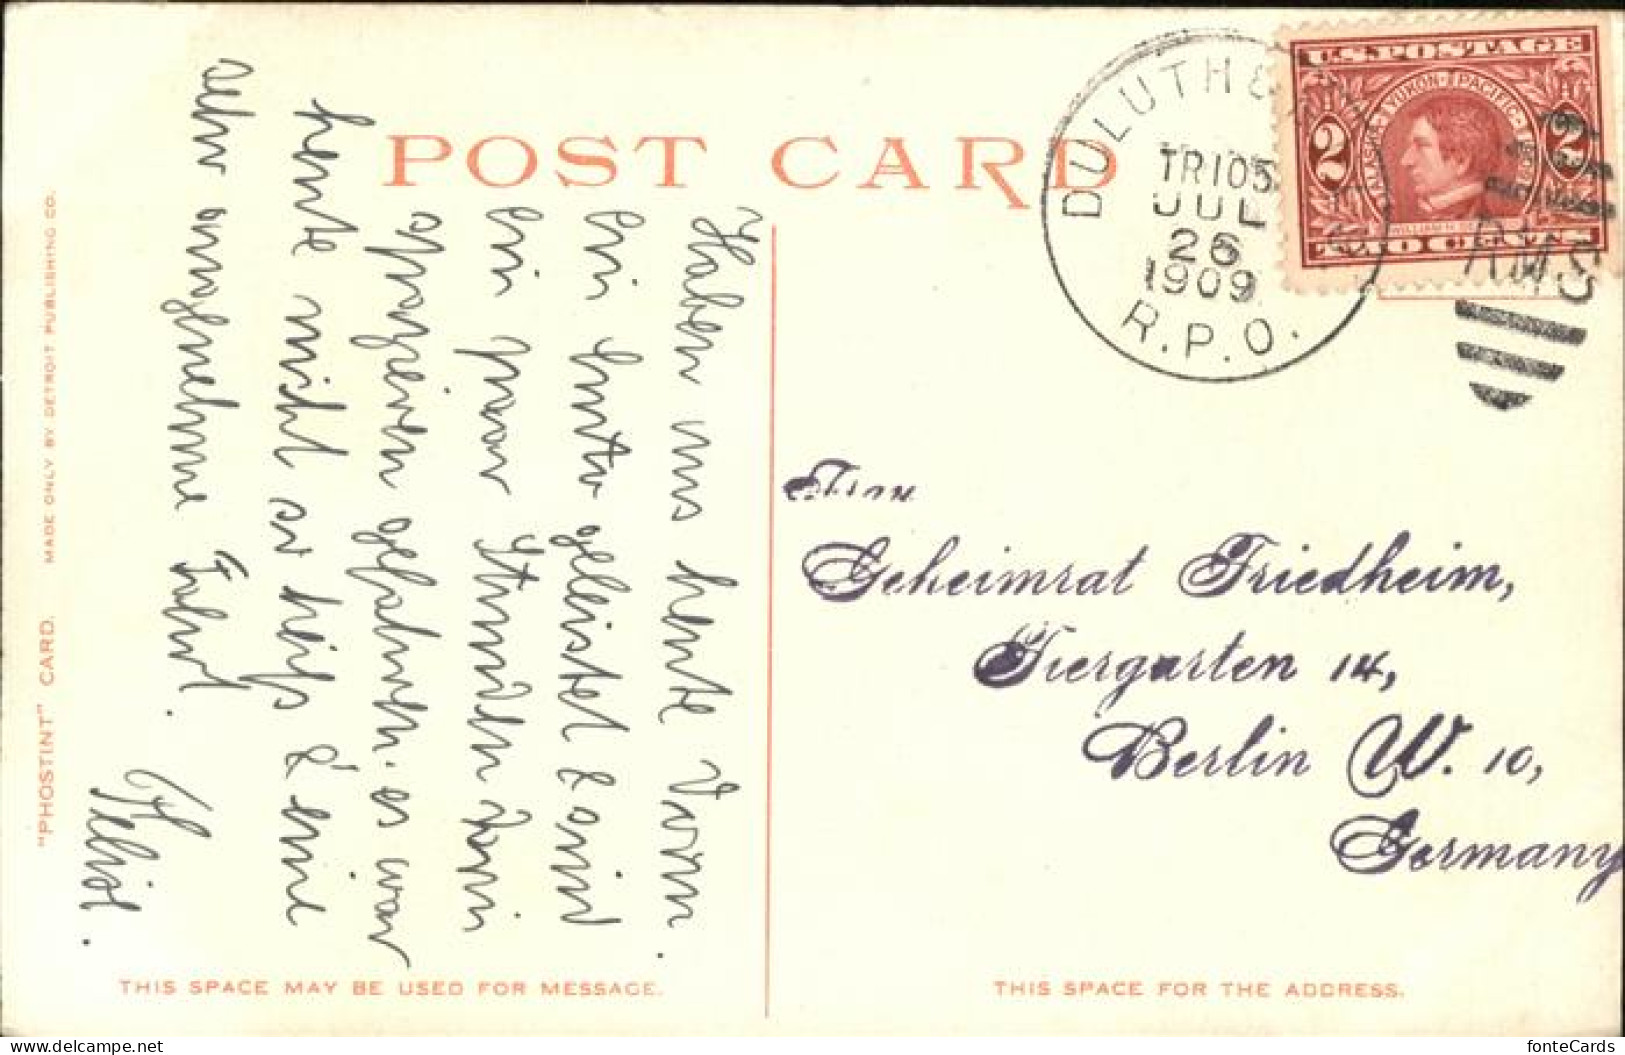 POST CARD
DULUTH &
TR 105
JUL
26
1909
R.P.O.
R.M.S
U.S. POSTAGE
ALASKA-YUKON-PACIFIC-1909
2 2
WILLIAM H.
TWO CENTS
Haben uns heute Vorm.
ein Auto geleistet & sind
ein paar Stunden darin
spazieren gefahren. es war
heute nicht so heiß & eine
sehr angenehme Fahrt.
Frau
Geheimrat Friedheim,
Tiergarten 14,
Berlin W. 10,
Germany
THIS SPACE MAY BE USED FOR MESSAGE.
THIS SPACE FOR THE ADDRESS.
"PHOSTINT" CARD. MADE ONLY BY DETROIT PUBLISHING CO.
www.delcampe.net
fonteCards